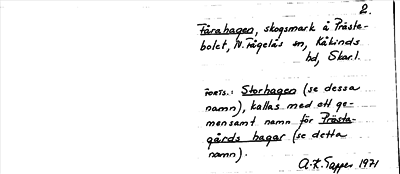 2.
Fårahagen, skogsmark å Präste-
bolet, N. Fågelås sn, Kåkinds
hd, Skar.l.
FORTS.: Storhagen (se dessa
namn), kallas med ett ge-
mensamt namn för Prästa-
gårds hagar (se detta
namn).
A.R. Tapper 1971